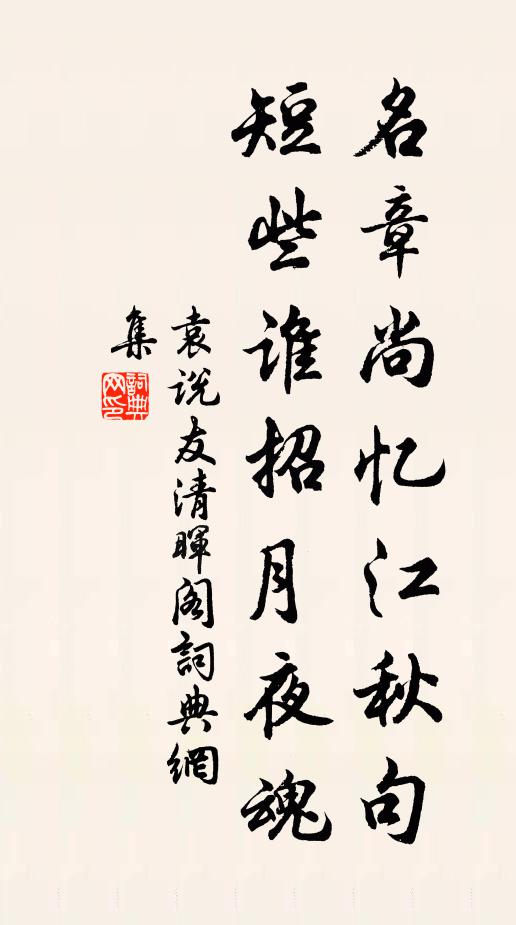 名章尚忆江秋句
短些谁招月夜魂
袁说友清暉阁詞典網
集
詞典网印